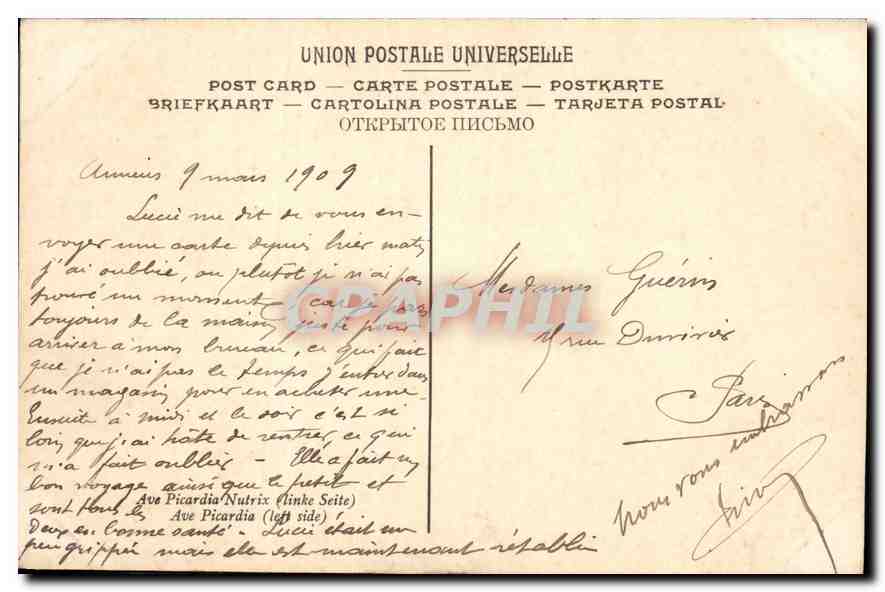 UNION POSTALE UNIVERSELLE
POST CARD — CARTE POSTALE — POSTKARTE
BRIEFKAART — CARTOLINA POSTALE — TARJETA POSTAL
ОТКРЫТОЕ ПИСЬМО
Amiens 9 mars 1909
Lucie me dit de vous en-
voyer une carte depuis hier matin
j'ai oublié, ou plutôt je n'ai pas
trouvé un moment car je pars
toujours de la maison juste pour
arriver à mon bureau, ce qui fait
que je n'ai pas le temps d'entrer dans
un magasin pour en acheter une.
Ensuite à midi et le soir c'est si
loin que j'ai hâte de rentrer, ce qui
m'a fait oublier — Elle a fait un
bon voyage ainsi que le petit et
sont tous les
deux en bonne santé. Lucie était un
peu grippée mais elle est maintenant rétablie
Ave Picardia Nutrix (linke Seite)
Ave Picardia (left side)
Mesdames Guérin
rue Duvivier
Paris
Nous vous embrassons
CPAPHIL